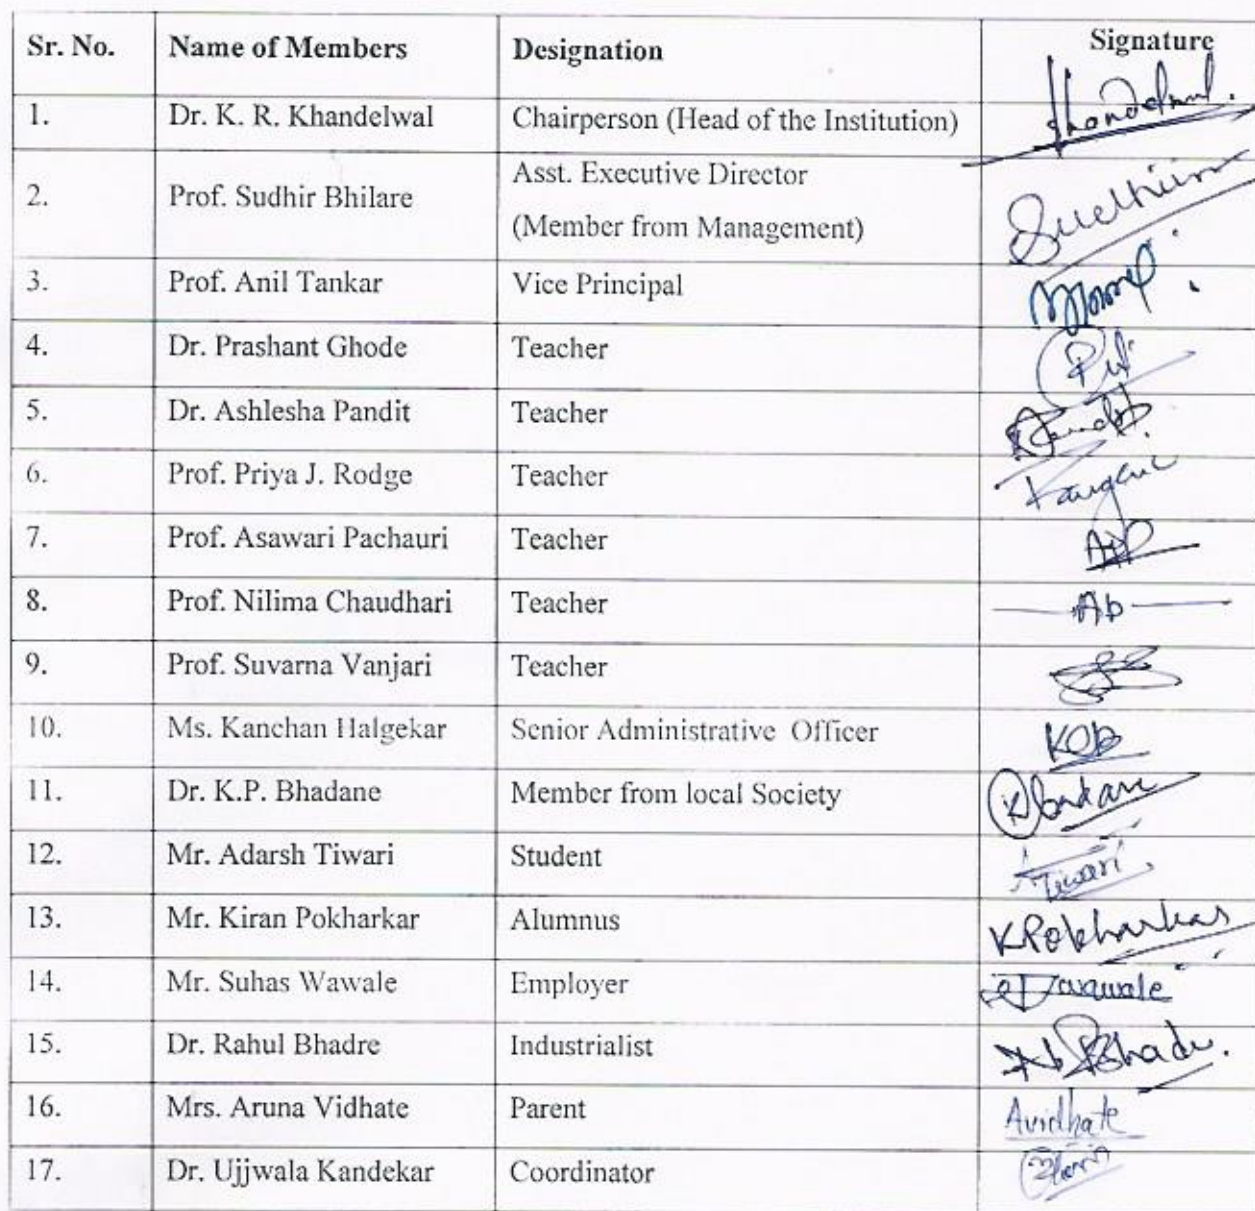 Sr. No. Name of Members Designation Signature
1. Dr. K. R. Khandelwal Chairperson (Head of the Institution) Khandelwal.
2. Prof. Sudhir Bhilare Asst. Executive Director
(Member from Management) Sudhir
3. Prof. Anil Tankar Vice Principal
4. Dr. Prashant Ghode Teacher
5. Dr. Ashlesha Pandit Teacher
6. Prof. Priya J. Rodge Teacher
7. Prof. Asawari Pachauri Teacher
8. Prof. Nilima Chaudhari Teacher Ab
9. Prof. Suvarna Vanjari Teacher
10. Ms. Kanchan Halgekar Senior Administrative Officer
11. Dr. K.P. Bhadane Member from local Society
12. Mr. Adarsh Tiwari Student ATiwari.
13. Mr. Kiran Pokharkar Alumnus KPokharkar
14. Mr. Suhas Wawale Employer
15. Dr. Rahul Bhadre Industrialist
16. Mrs. Aruna Vidhate Parent Avidhate
17. Dr. Ujjwala Kandekar Coordinator